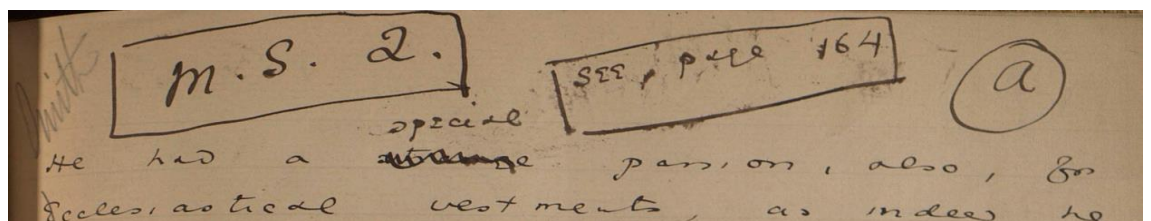 M.S. 2.
SEE, page 164
a
special
He had a passion, also, for
Ecclesiastical vestments, as indeed he